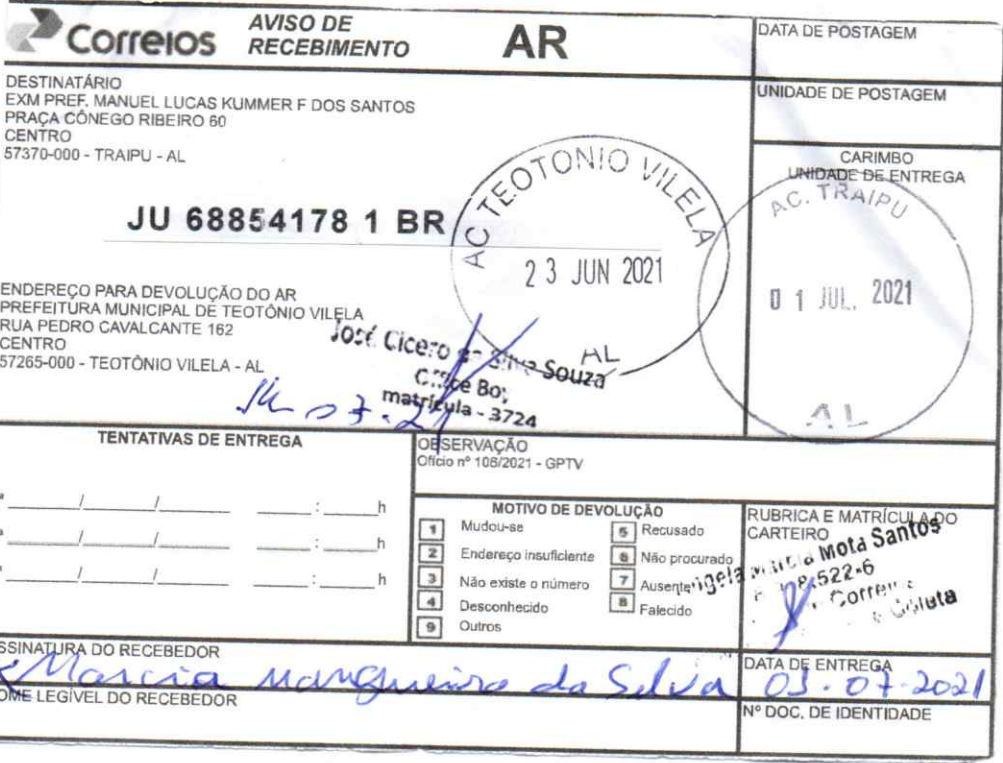 Correios
AVISO DE
RECEBIMENTO
AR
DATA DE POSTAGEM
UNIDADE DE POSTAGEM
DESTINATÁRIO
EXM PREF. MANUEL LUCAS KUMMER F DOS SANTOS
PRAÇA CÔNEGO RIBEIRO 60
CENTRO
57370-000 - TRAIPU - AL
JU 68854178 1 BR
AC TEOTONIO VILELA
23 JUN 2021
AL
CARIMBO
UNIDADE DE ENTREGA
AC. TRAIPU
01 JUL. 2021
AL
ENDEREÇO PARA DEVOLUÇÃO DO AR
PREFEITURA MUNICIPAL DE TEOTÔNIO VILELA
RUA PEDRO CAVALCANTE 162
CENTRO
57265-000 - TEOTÔNIO VILELA - AL
José Cicero da Silva Souza
Office Boy
matrícula - 3724
TENTATIVAS DE ENTREGA
ª ____/____/____ ____:____h
ª ____/____/____ ____:____h
ª ____/____/____ ____:____h
OBSERVAÇÃO
Ofício nº 106/2021 - GPTV
MOTIVO DE DEVOLUÇÃO
1 Mudou-se
2 Endereço insuficiente
3 Não existe o número
4 Desconhecido
9 Outros
5 Recusado
6 Não procurado
7 Ausente
8 Falecido
RUBRICA E MATRÍCULA DO
CARTEIRO
Mota Santos
522-6
SSINATURA DO RECEBEDOR
Marcia Mangueira da Silva
DATA DE ENTREGA
03.07.2021
OME LEGÍVEL DO RECEBEDOR
Nº DOC. DE IDENTIDADE